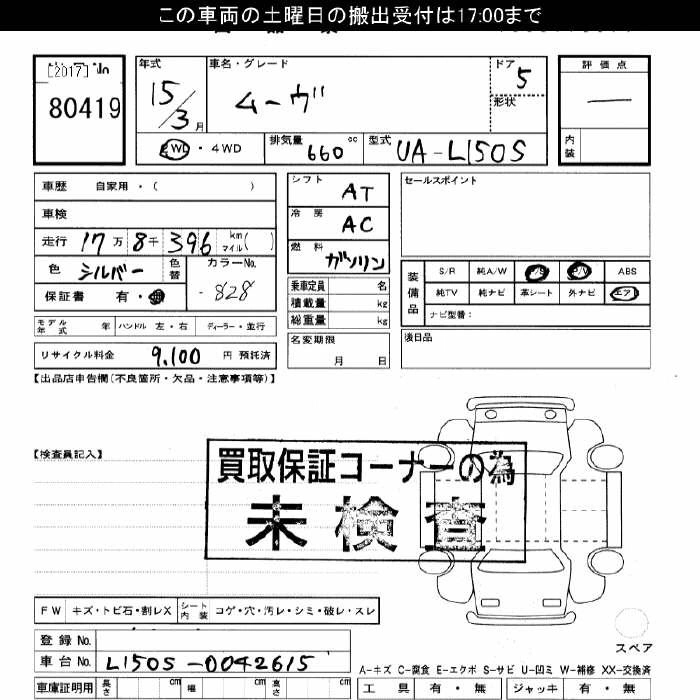 この車両の土曜日の搬出受付は17:00まで
[2017]
80419
年式
15/3月
車名・グレード
ムーヴ
ドア
5
形状
評価点
―
内装
2WD・4WD
排気量 660 cc
型式 UA-L150S
車歴 自家用・( )
車検
走行 17万8千396 km マイル( )
色 シルバー 色替
カラーNo. 828
保証書 有・無
モデル年式 年 ハンドル 左・右 ディーラー・並行
リサイクル料金 9,100 円 預託済
シフト AT
冷房 AC
燃料 ガソリン
乗車定員 名
積載量 kg
総重量 kg
名変期限
月 日
セールスポイント
装備品
S/R 純A/W P/S P/W ABS
純TV 純ナビ 革シート 外ナビ エアB
ナビ型番:
後日品
【出品店申告欄(不良箇所・欠品・注意事項等)】
【検査員記入】
買取保証コーナーの為
未検査
FW キズ・トビ石・割レX シート内装 コゲ・穴・汚レ・シミ・破レ・スレ
登録No.
車台No. L150S-0042615
車庫証明用 長さ cm 幅 cm 高さ cm
スペア
A-キズ C-腐食 E-エクボ S-サビ U-凹ミ W-補修 XX-交換済
工具 有・無 ジャッキ 有・無